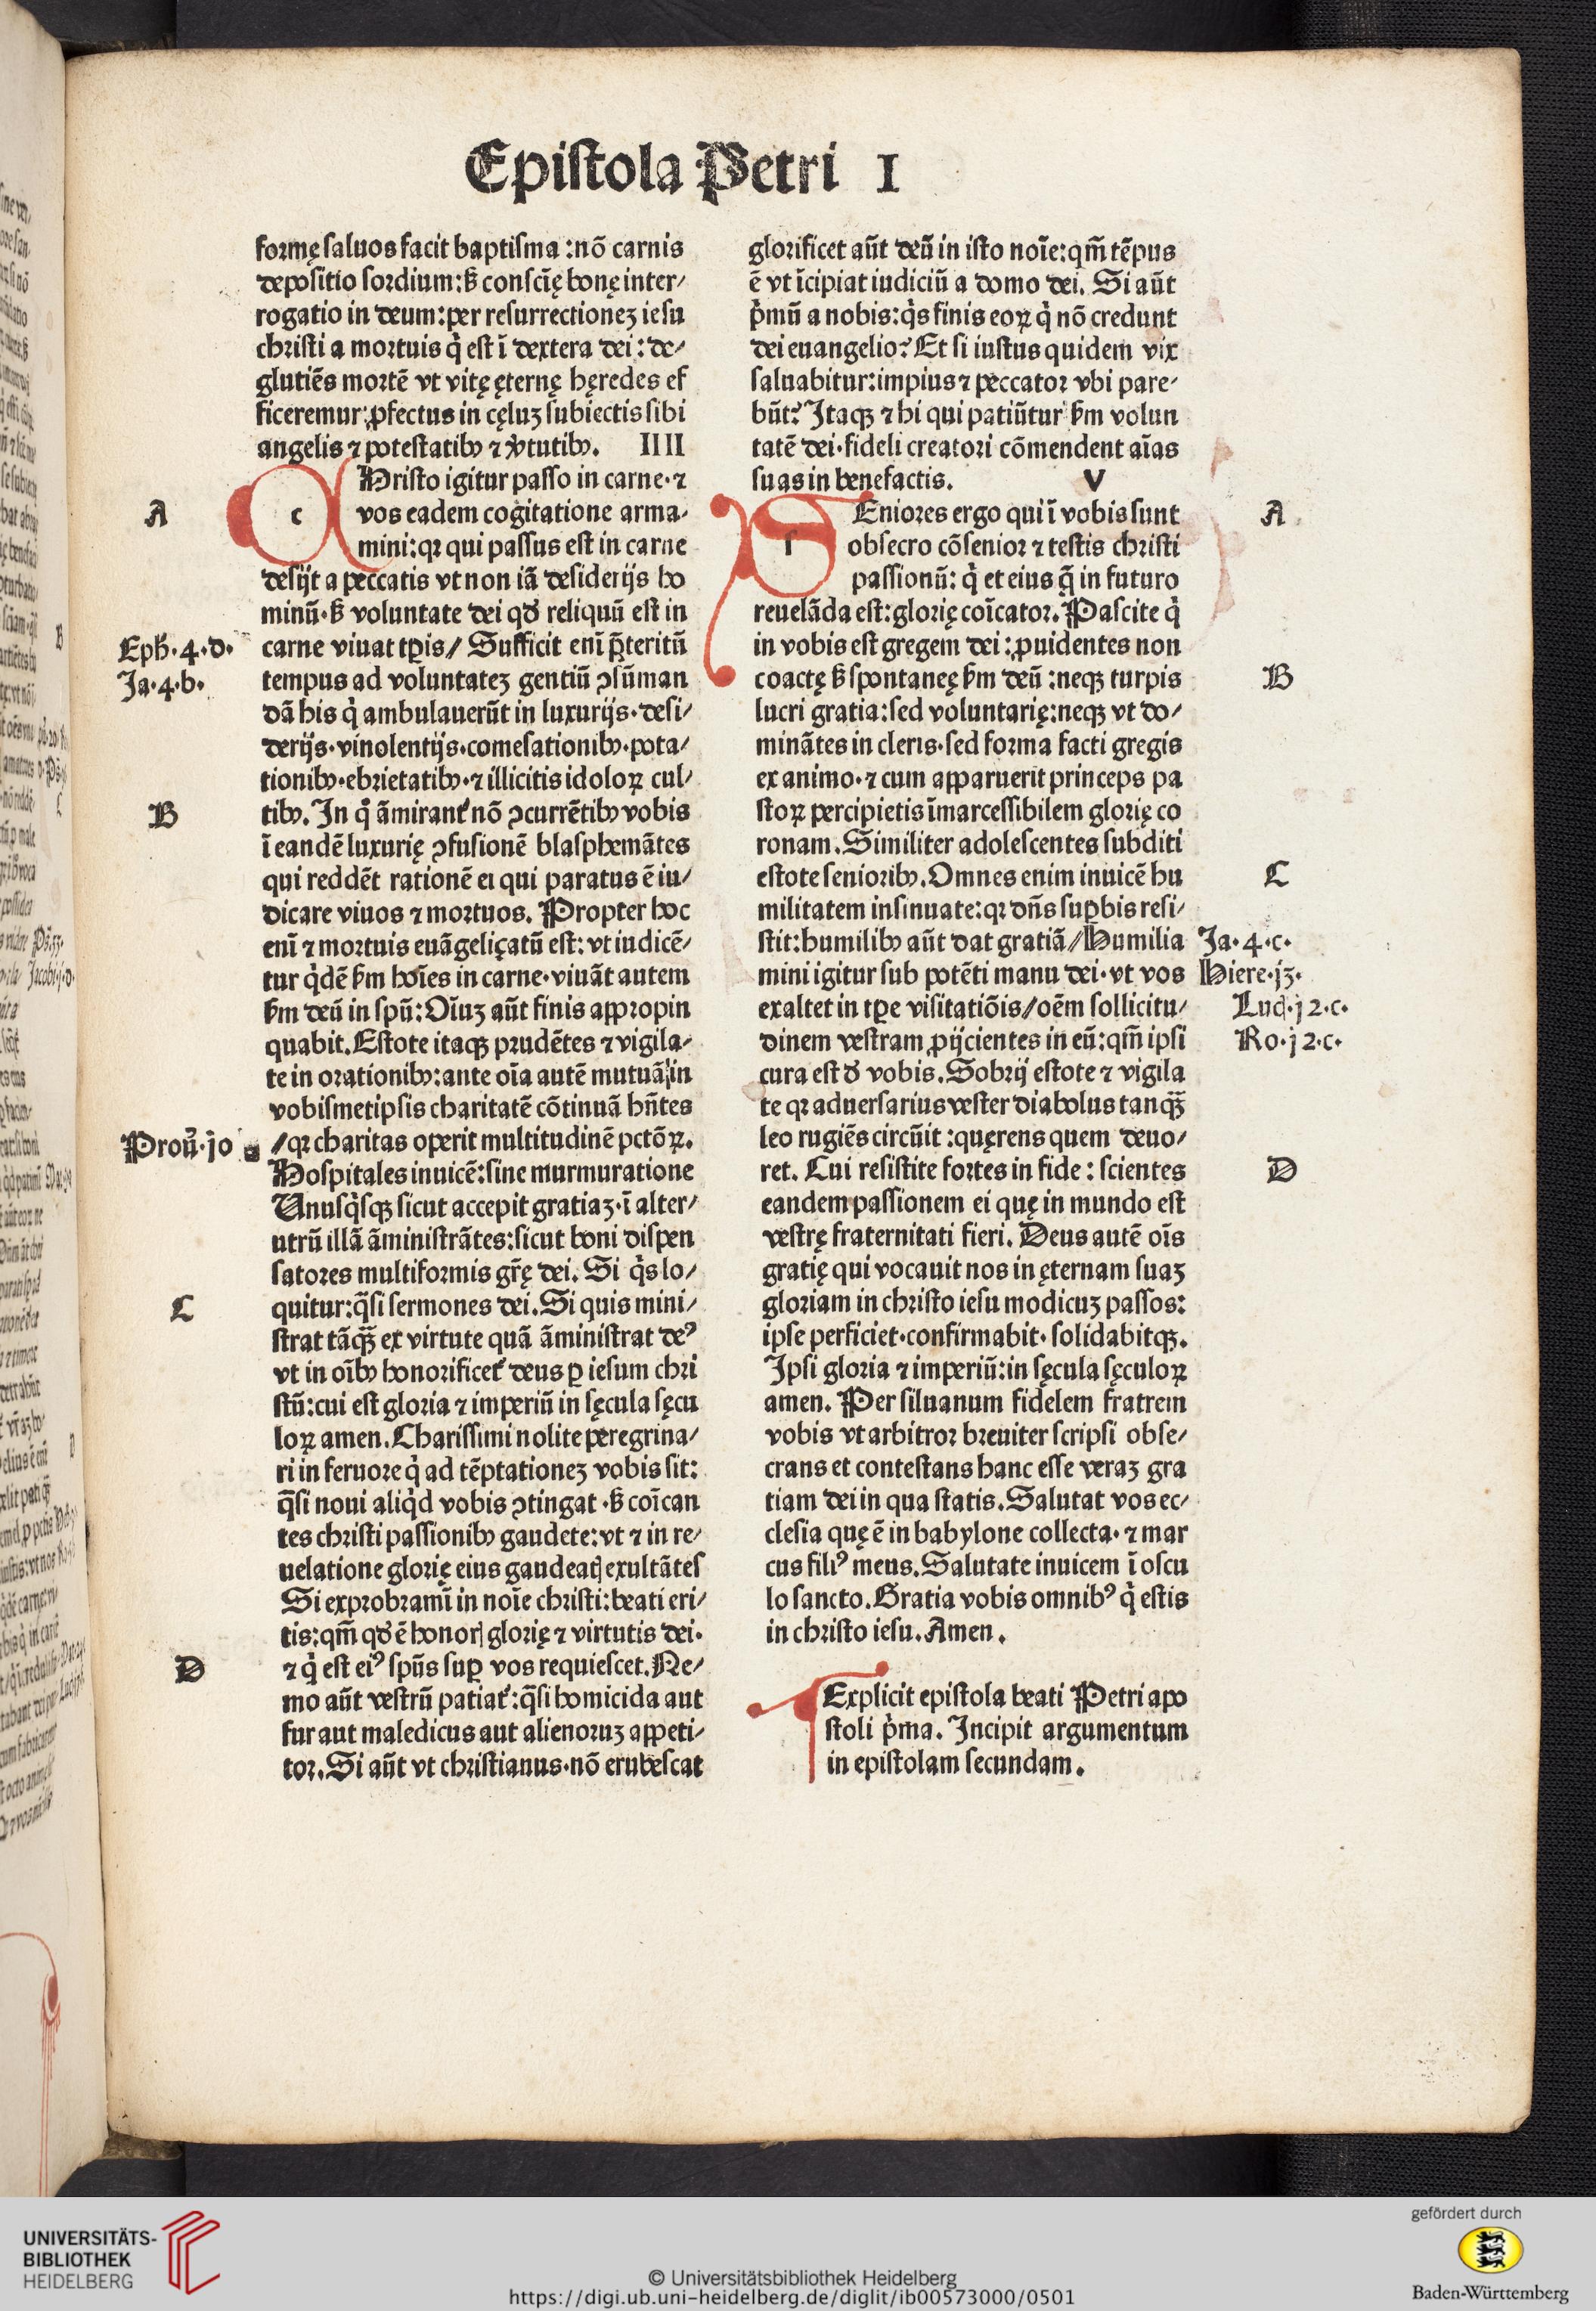 Epistola Petri I
formę saluos facit baptisma :nō carnis
depositio sordium:ꝸ conscię̄ bonę inter/
rogatio in deum:per resurrectionez iesu
christi a mortuis q̇ est ī dextera dei: de/
glutiēs mortē vt vitę ęternę hęredes ef
ficeremur:ꝓfectus in cęluz subiectis sibi
angelis ⁊ potestatibꝰ ⁊ v̓tutibꝰ. IIII
c
Hristo igitur passo in carne·⁊
vos eadem cogitatione arma/
mini:qꝛ qui passus est in carne
desijt a peccatis vt non iā desiderijs ho
minū·ꝸ voluntate dei qđ reliquū est in
carne viuat tꝑis/ Sufficit enī p̄teritū
tempus ad voluntatez gentiū ꝯsūman
dā his q̇ ambulauerūt in luxurijs·desi/
derijs·vinolentijs·comesationibꝰ·pota/
tionibꝰ·ebrietatibꝰ·⁊ illicitis idoloꝝ cul/
tibꝰ. In q̊ āmirant᷑ nō ꝯcurrētibꝰ vobis
ī eandē luxurię ꝯfusionē blasphemātes
qui reddēt rationē ei qui paratus ē iu/
dicare viuos ⁊ mortuos. Propter hoc
enī ⁊ mortuis euāgeliçatū est: vt iudicē/
tur q̇dē ẜm hoīes in carne·viuāt autem
ẜm deū in spū: Oīuz aūt finis appropin
quabit. Estote itaqꝫ prudētes ⁊ vigila/
te in orationibꝰ:ante oīa autē mutuā in
vobismetipsis charitatē cōtinuā hn̄tes
/qꝛ charitas operit multitudinē pctōꝝ.
Hospitales inuicē:sine murmuratione
Unusq̇sqꝫ sicut accepit gratiaz·ī alter/
utrū illā āministrātes:sicut boni dispen
satores multiformis gr̄ę dei. Si q̇s lo/
quitur:q̄si sermones dei. Si quis mini/
strat tāq̄ꝫ ex virtute quā āministrat deꝰ
vt in oībꝰ honorificet᷑ deus ꝑ iesum chri
stū:cui est gloria ⁊ imperiū in sęcula sęcu
loꝝ amen. Charissimi nolite peregrina/
ri in feruore q̇ ad tēptationez vobis sit:
q̄si noui aliq̇d vobis ꝯtingat·ꝸ coīcan
tes christi passionibꝰ gaudete:vt ⁊ in re/
uelatione glorię eius gaudeat exultātes
Si exprobramī in noīe christi:beati eri/
tis:qm̄ qđ ē honor glorię ⁊ virtutis dei·
⁊ q̇ est eiꝰ spūs suꝑ vos requiescet. Ne/
mo aūt vestrū patiat᷑:q̄si homicida aut
fur aut maledicus aut alienoruz appeti/
tor. Si aūt vt christianus·nō erubescat
A
Eph·4·d·
Ja·4·b·
B
Prou̅·jo
C
D
glorificet aūt deū in isto noīe:qm̄ tēpus
ē vt īcipiat iudiciū a domo dei. Si aūt
p̓mū a nobis:q̇s finis eoꝝ q̇ nō credunt
dei euangelio? Et si iustus quidem vix
saluabitur:impius ⁊ peccator vbi pare/
būt? Itaqꝫ ⁊ hi qui patiūtur ẜm volun
tatē dei·fideli creatori cōmendent aīas
suas in benefactis. V
s
Eniores ergo qui ī vobis sunt
obsecro cōsenior ⁊ testis christi
passionū: q̇ et eius q̄ in futuro
reuelāda est:glorię coīcator. Pascite q̇
in vobis est gregem dei:ꝓuidentes non
coactę ꝸ spontaneę ẜm deū :neqꝫ turpis
lucri gratia:sed voluntarię:neqꝫ vt do/
minātes in cleris·sed forma facti gregis
ex animo·⁊ cum apparuerit princeps pa
stoꝝ percipietis īmarcessibilem glorię co
ronam. Similiter adolescentes subditi
estote senioribꝰ. Omnes enim inuicē hu
militatem insinuate:qꝛ dn̄s suꝑbis resi/
stit:humilibꝰ aūt dat gratiā/Humilia
mini igitur sub potēti manu dei·vt vos
exaltet in tꝑe visitatiōis/oēm sollicitu/
dinem vestram ꝓijcientes in eū:qm̄ ipsi
cura est đ vobis. Sobrij estote ⁊ vigila
te qꝛ aduersarius vester diabolus tanq̄ꝫ
leo rugiēs circūit :quęrens quem deuo/
ret. Cui resistite fortes in fide : scientes
eandem passionem ei quę in mundo est
vestrę fraternitati fieri. Deus autē oīs
gratię qui vocauit nos in ęternam suaz
gloriam in christo iesu modicuz passos:
ipse perficiet·confirmabit·solidabitqꝫ.
Ipsi gloria ⁊ imperiū:in sęcula sęculoꝝ
amen. Per siluanum fidelem fratrem
vobis vt arbitror breuiter scripsi obse/
crans et contestans hanc esse veraz gra
tiam dei in qua statis. Salutat vos ec/
clesia quę ē in babylone collecta·⁊ mar
cus filiꝰ meus. Salutate inuicem ī oscu
lo sancto. Gratia vobis omnibꝰ q̇ estis
in christo iesu. Amen.
Explicit epistola beati Petri apo
stoli p̓ma. Incipit argumentum
in epistolam secundam.
A
B
C
Ja·4·c·
Hiere·jz·
Luc·j2·c·
Ro·j2·c·
D
UNIVERSITÄTS-
BIBLIOTHEK
HEIDELBERG
© Universitätsbibliothek Heidelberg
https://digi.ub.uni-heidelberg.de/diglit/ib00573000/0501
gefördert durch
Baden-Württemberg